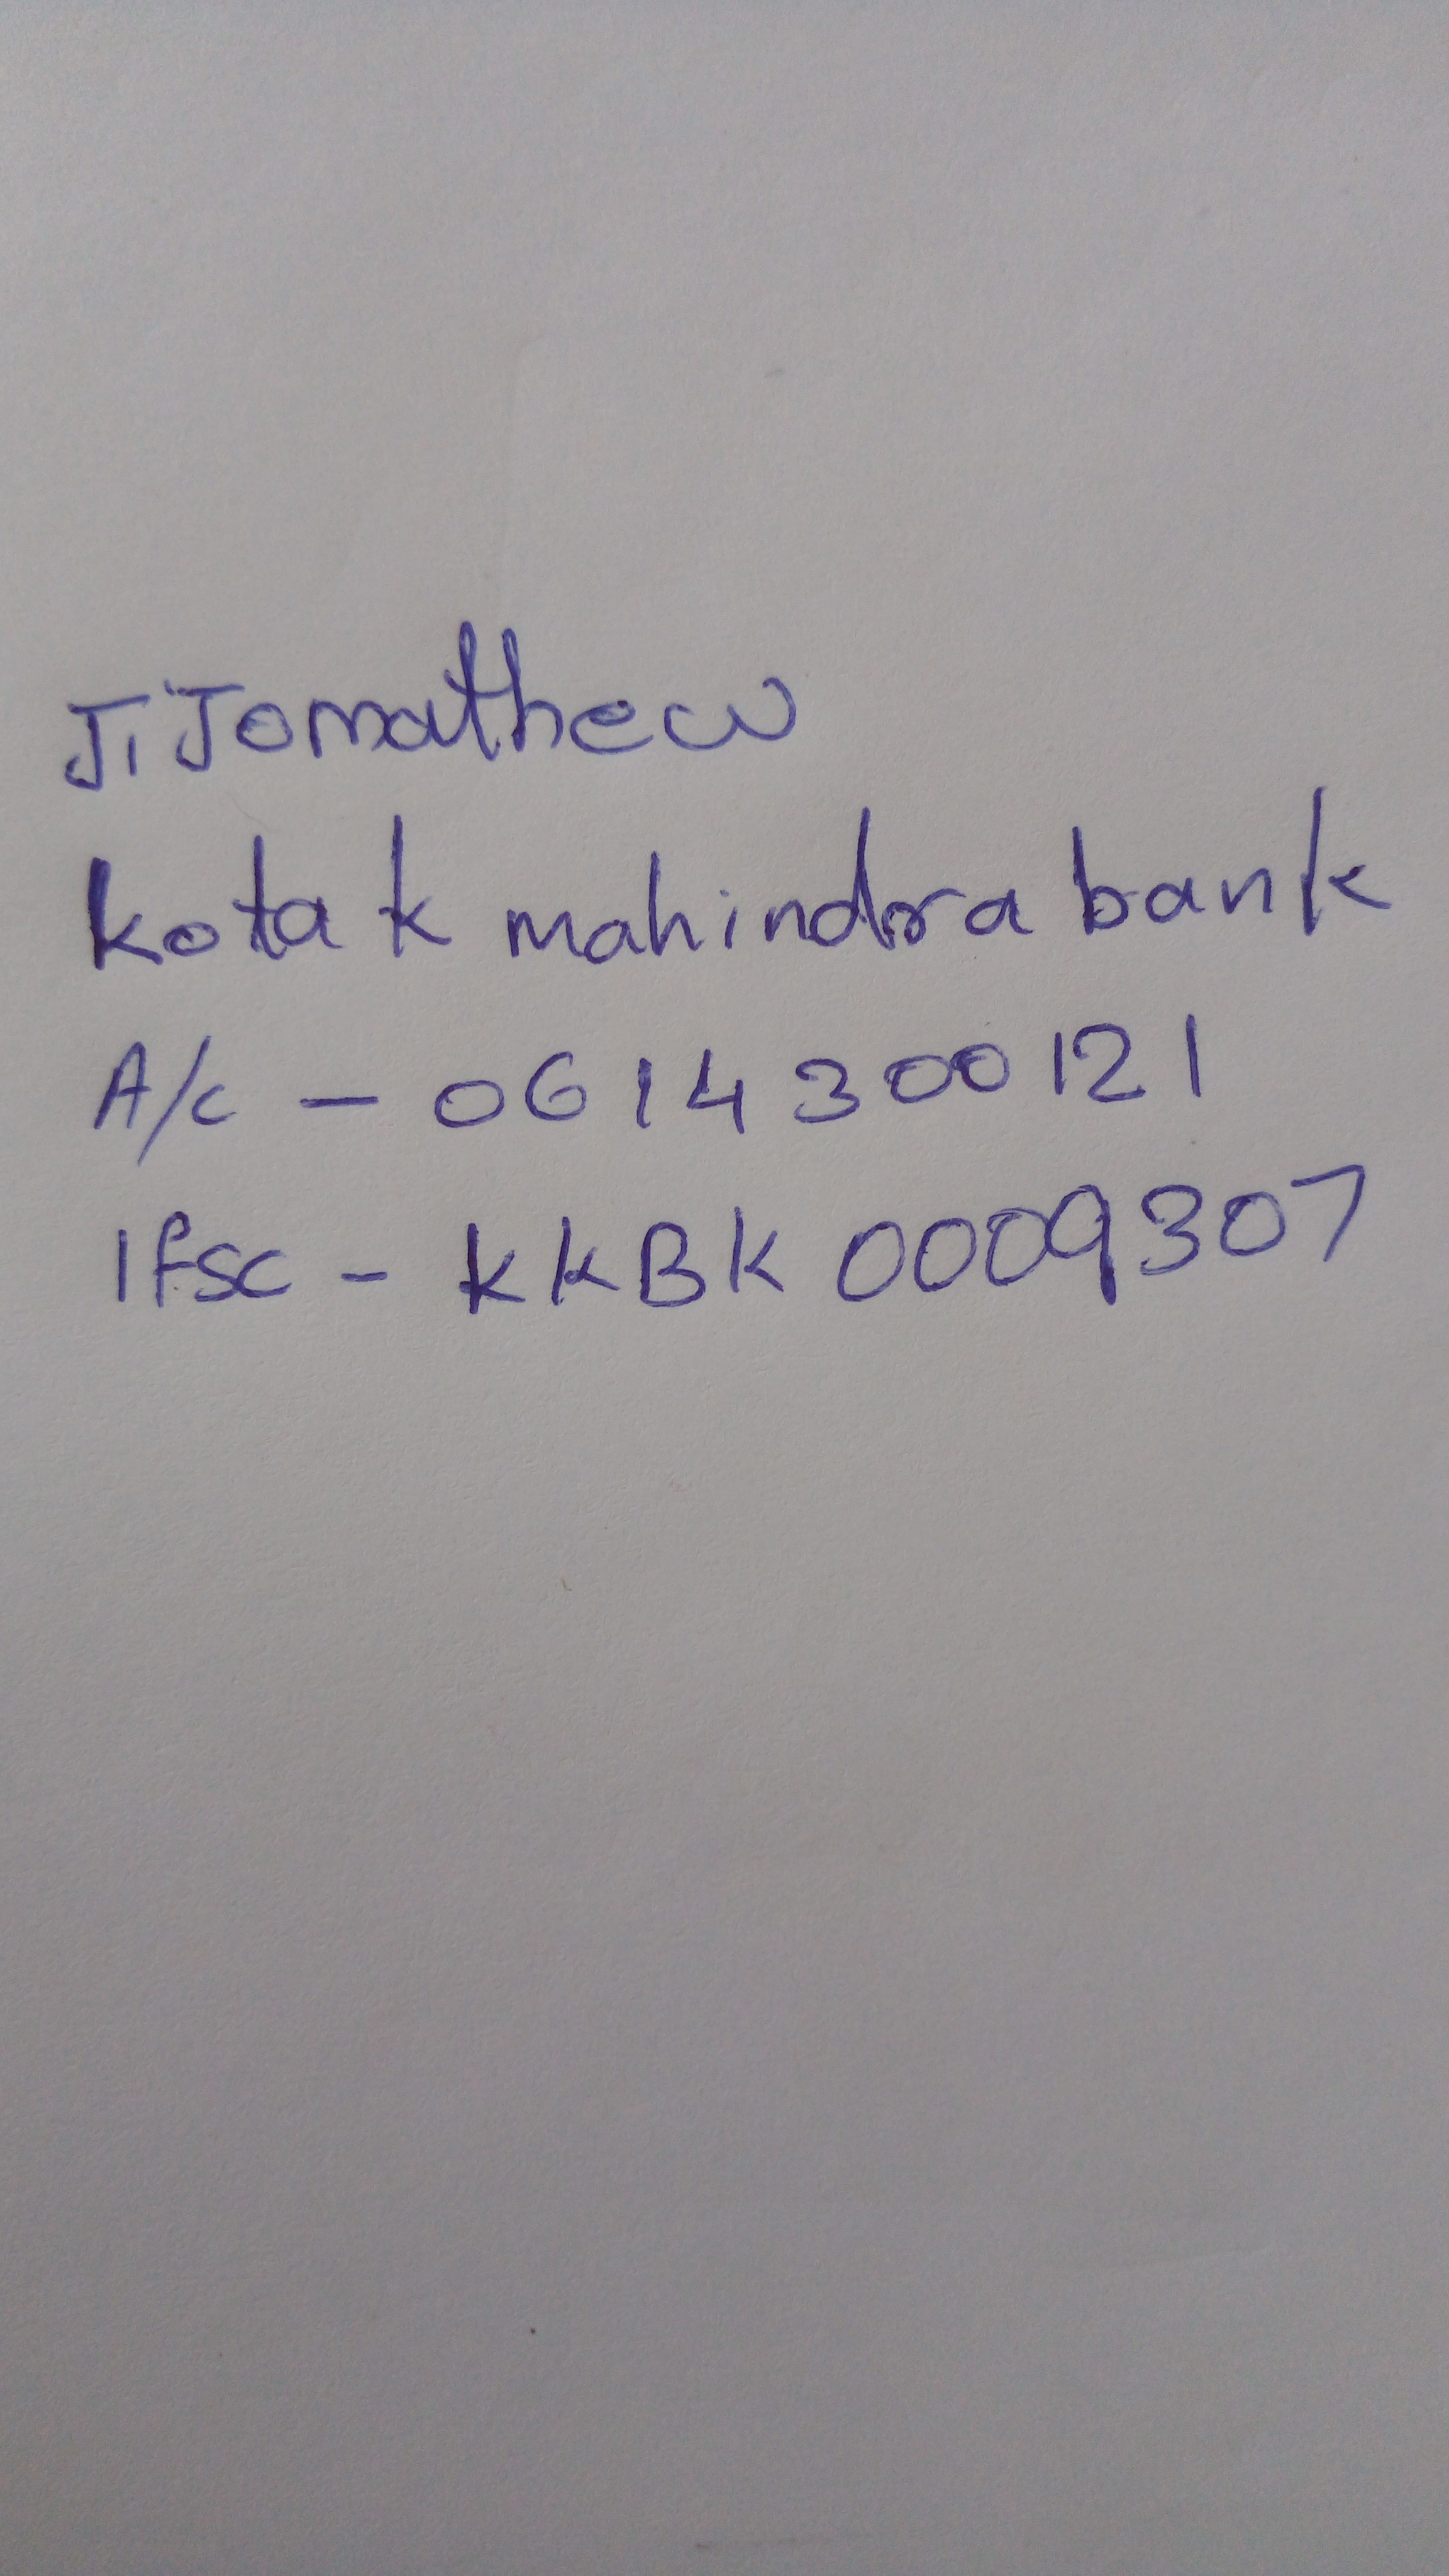 JiJomathew
kotak mahindra bank
A/c - 0614300121
Ifsc - KKBK0009307